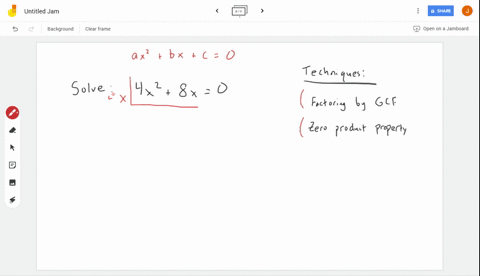 Untitled Jam
SHARE
J
Background
Clear frame
Open on a Jamboard
ax² + bx + c = 0
Techniques:
Solve: x 4x² + 8x = 0
Factoring by GCF
Zero product property